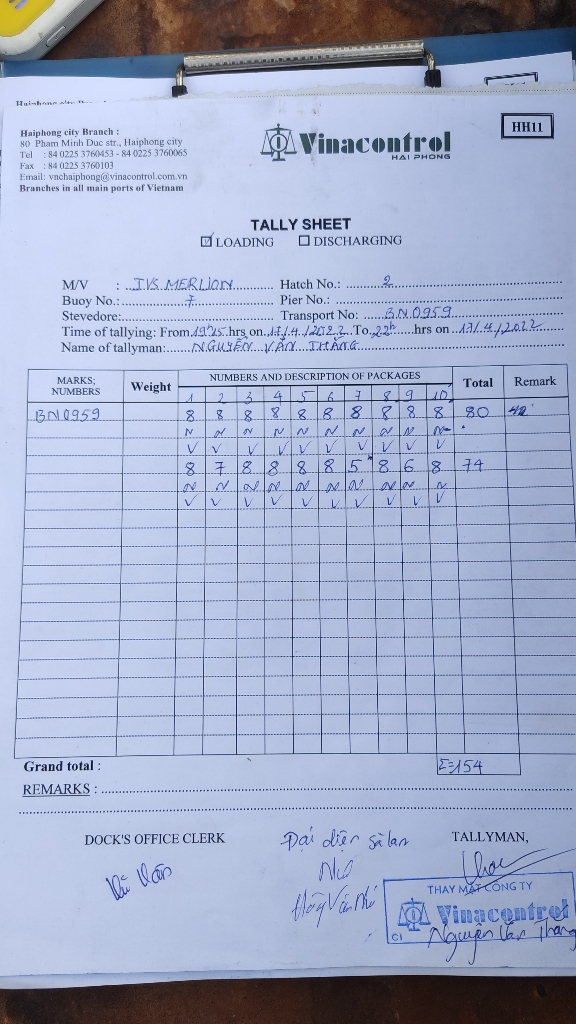 HH11
Haiphong city Branch :
80 Pham Minh Duc str., Haiphong city
Tel : 84 0225 3760453 - 84 0225 3760065
Fax : 84 0225 3760103
Email: vnchaiphong@vinacontrol.com.vn
Branches in all main ports of Vietnam
Vinacontrol
HAI PHONG
TALLY SHEET
☑ LOADING ☐ DISCHARGING
M/V : IVS MERLION Hatch No.: 2
Buoy No.: 7 Pier No.:
Stevedore: Transport No: BN0959
Time of tallying: From 19h15 hrs on 17/4/2022 To 22h hrs on 17/4/2022
Name of tallyman: NGUYỄN VĂN THẮNG
MARKS; NUMBERS Weight NUMBERS AND DESCRIPTION OF PACKAGES Total Remark
1 2 3 4 5 6 7 8 9 10
BN0959 8 8 8 8 8 8 8 8 8 8 80
N N N N N N N N N N
V V V V V V V V V V
8 7 8 8 8 8 5 8 6 8 74
N N N N N N N N N N
V V V V V V V V V V
Grand total : Σ=154
REMARKS :
DOCK'S OFFICE CLERK Đại diện sà lan TALLYMAN,
THAY MẶT CÔNG TY
Vinacontrol
C1
Nguyễn Văn Thắng